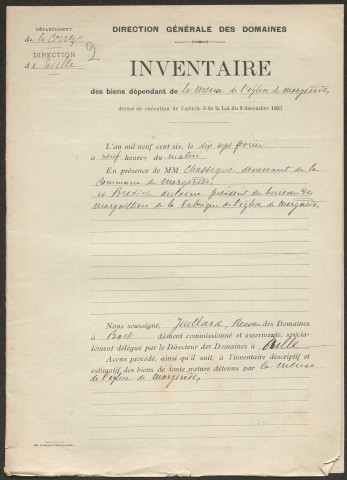 DÉPARTEMENT
de la Corrèze
DIRECTION
de Tulle
2
DIRECTION GÉNÉRALE DES DOMAINES
INVENTAIRE
des biens dépendant de la mense de l'église de Margerides,
dressé en exécution de l'article 3 de la Loi du 9 décembre 1905
L'an mil neuf cent six, le dix sept février
à neuf heures du matin
En présence de MM. desservant de la
commune de Margerides,
et président du bureau des
marguilliers de la fabrique de l'église de Margerides,
Nous soussigné, Juillard, Receveur des Domaines
à Bort dûment commissionné et assermenté, spécia-
lement délégué par le Directeur des Domaines à Tulle
Avons procédé, ainsi qu'il suit, à l'inventaire descriptif et
estimatif des biens de toute nature détenus par la mense
de l'église de Margerides,